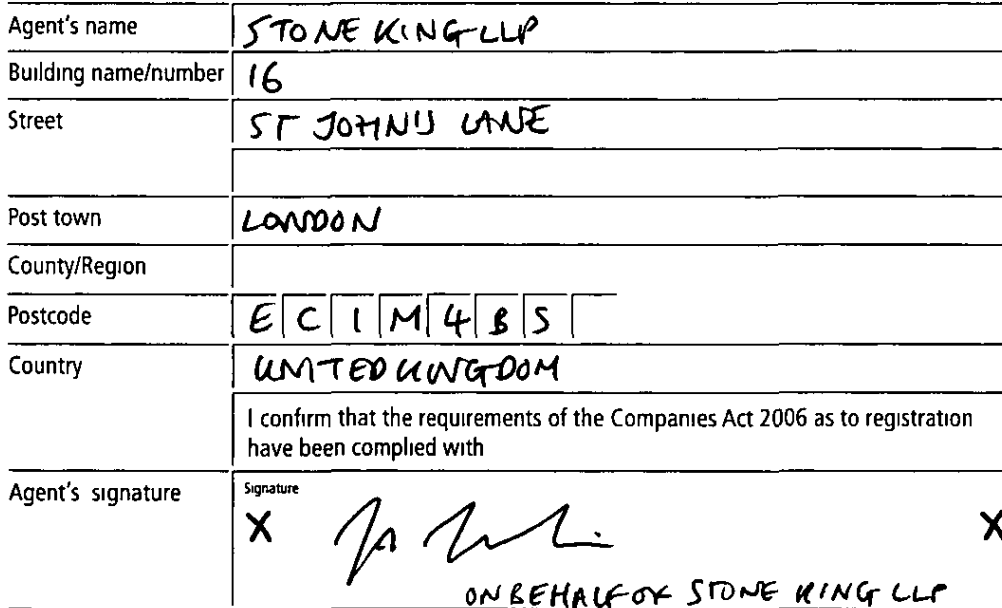 Agent's name STONE KING LLP
Building name/number 16
Street ST JOHN'S LANE
Post town LONDON
County/Region
Postcode EC1M4BS
Country UNITED KINGDOM
I confirm that the requirements of the Companies Act 2006 as to registration
have been complied with
Agent's signature
Signature
X X
ON BEHALF OF STONE KING LLP